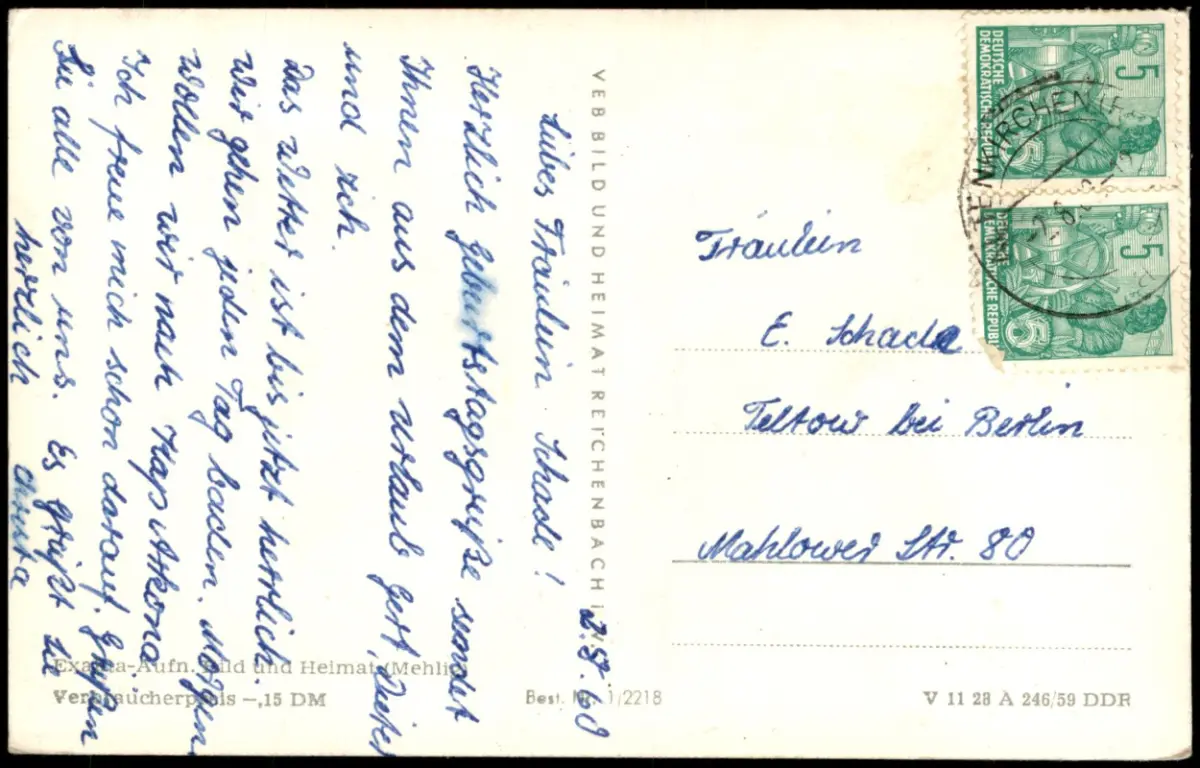 2.8.60
Liebes Fräulein Schade!
Herzlich Geburtstagsgrüße sendet
Ihnen aus dem Urlaub Gert, Dieter
und ich.
Das Wetter ist bis jetzt herrlich.
Wir gehen jeden Tag baden. Morgen
wollen wir nach Kap Arkona
Ich freue mich schon darauf. Grüßen
Sie alle von uns. Es grüßt Sie
herzlich Christa
VEB BILD UND HEIMAT REICHENBACH i. V.
Exakta-Aufn. Bild und Heimat (Mehlig)
Verbraucherpreis -,15 DM
Best. Nr. 1/2218
V 11 28 A 246/59 DDR
DEUTSCHE
DEMOKRATISCHE REPUBLIK
5
5
DEUTSCHE
DEMOKRATISCHE REPUBLIK
5
5
Fräulein
E. Schade
Teltow bei Berlin
Mahlower Str. 80